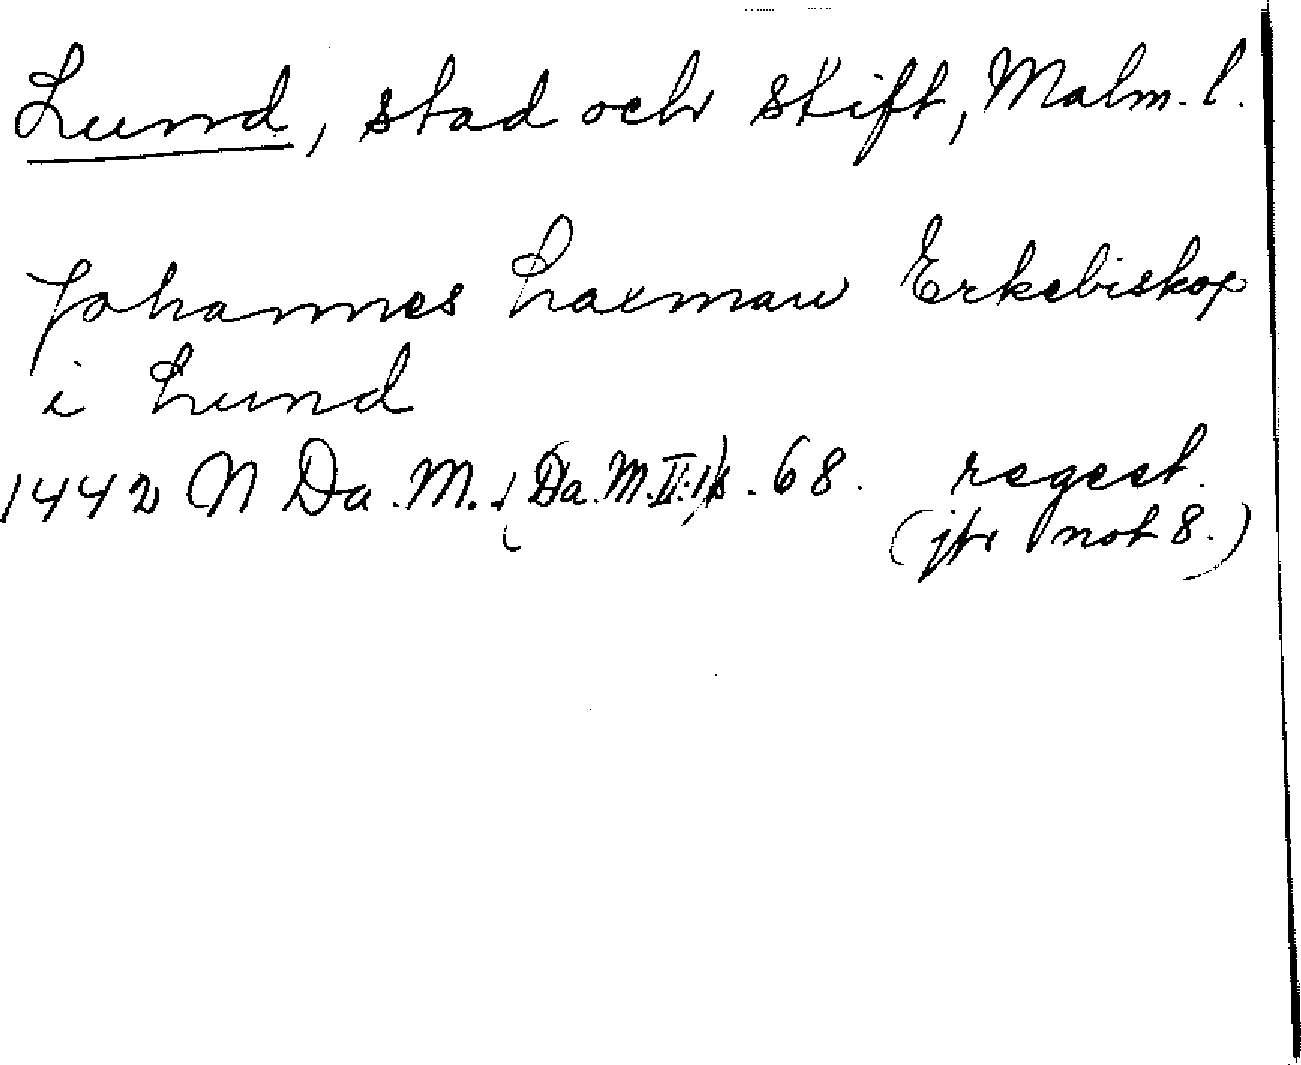 Lund, stad och stift, Malm. l.
Johannes Laxman Erkebiskop
i Lund
1442 N Da. M. (Da. M. II:1) s. 68. regest.
(jfr not 8.)